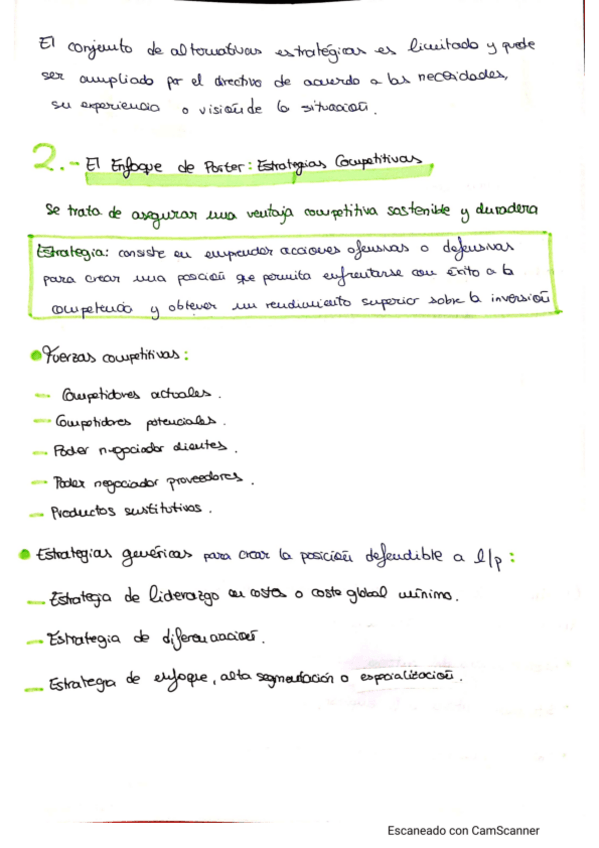 El conjunto de alternativas estratégicas es limitado y puede
ser ampliado por el directivo de acuerdo a las necesidades,
su experiencia o visión de la situación.
2.- El Enfoque de Porter: Estrategias Competitivas
Se trata de asegurar una ventaja competitiva sostenible y duradera
Estrategia: consiste en emprender acciones ofensivas o defensivas
para crear una posición que permita enfrentarse con éxito a la
competencia y obtener un rendimiento superior sobre la inversión
Fuerzas competitivas:
- Competidores actuales.
- Competidores potenciales.
- Poder negociador clientes.
- Poder negociador proveedores.
- Productos sustitutivos.
Estrategias genéricas para crear la posición defendible a l/p:
- Estrategia de liderazgo en costos o coste global mínimo.
- Estrategia de diferenciación.
- Estrategia de enfoque, alta segmentación o especialización.
Escaneado con CamScanner